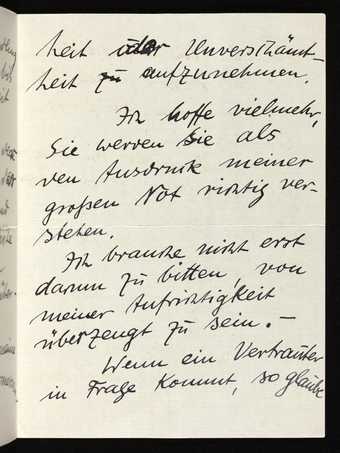 heit oder Unverschämt-
heit zu aufzunehmen.
Ich hoffe vielmehr,
Sie werden Sie als
den Ausdruck meiner
großen Not richtig ver-
stehen.
Ich brauche nicht erst
darum zu bitten, von
meiner Aufrichtigkeit
überzeugt zu sein. –
Wenn ein Vertrauter
in Frage kommt, so glaube